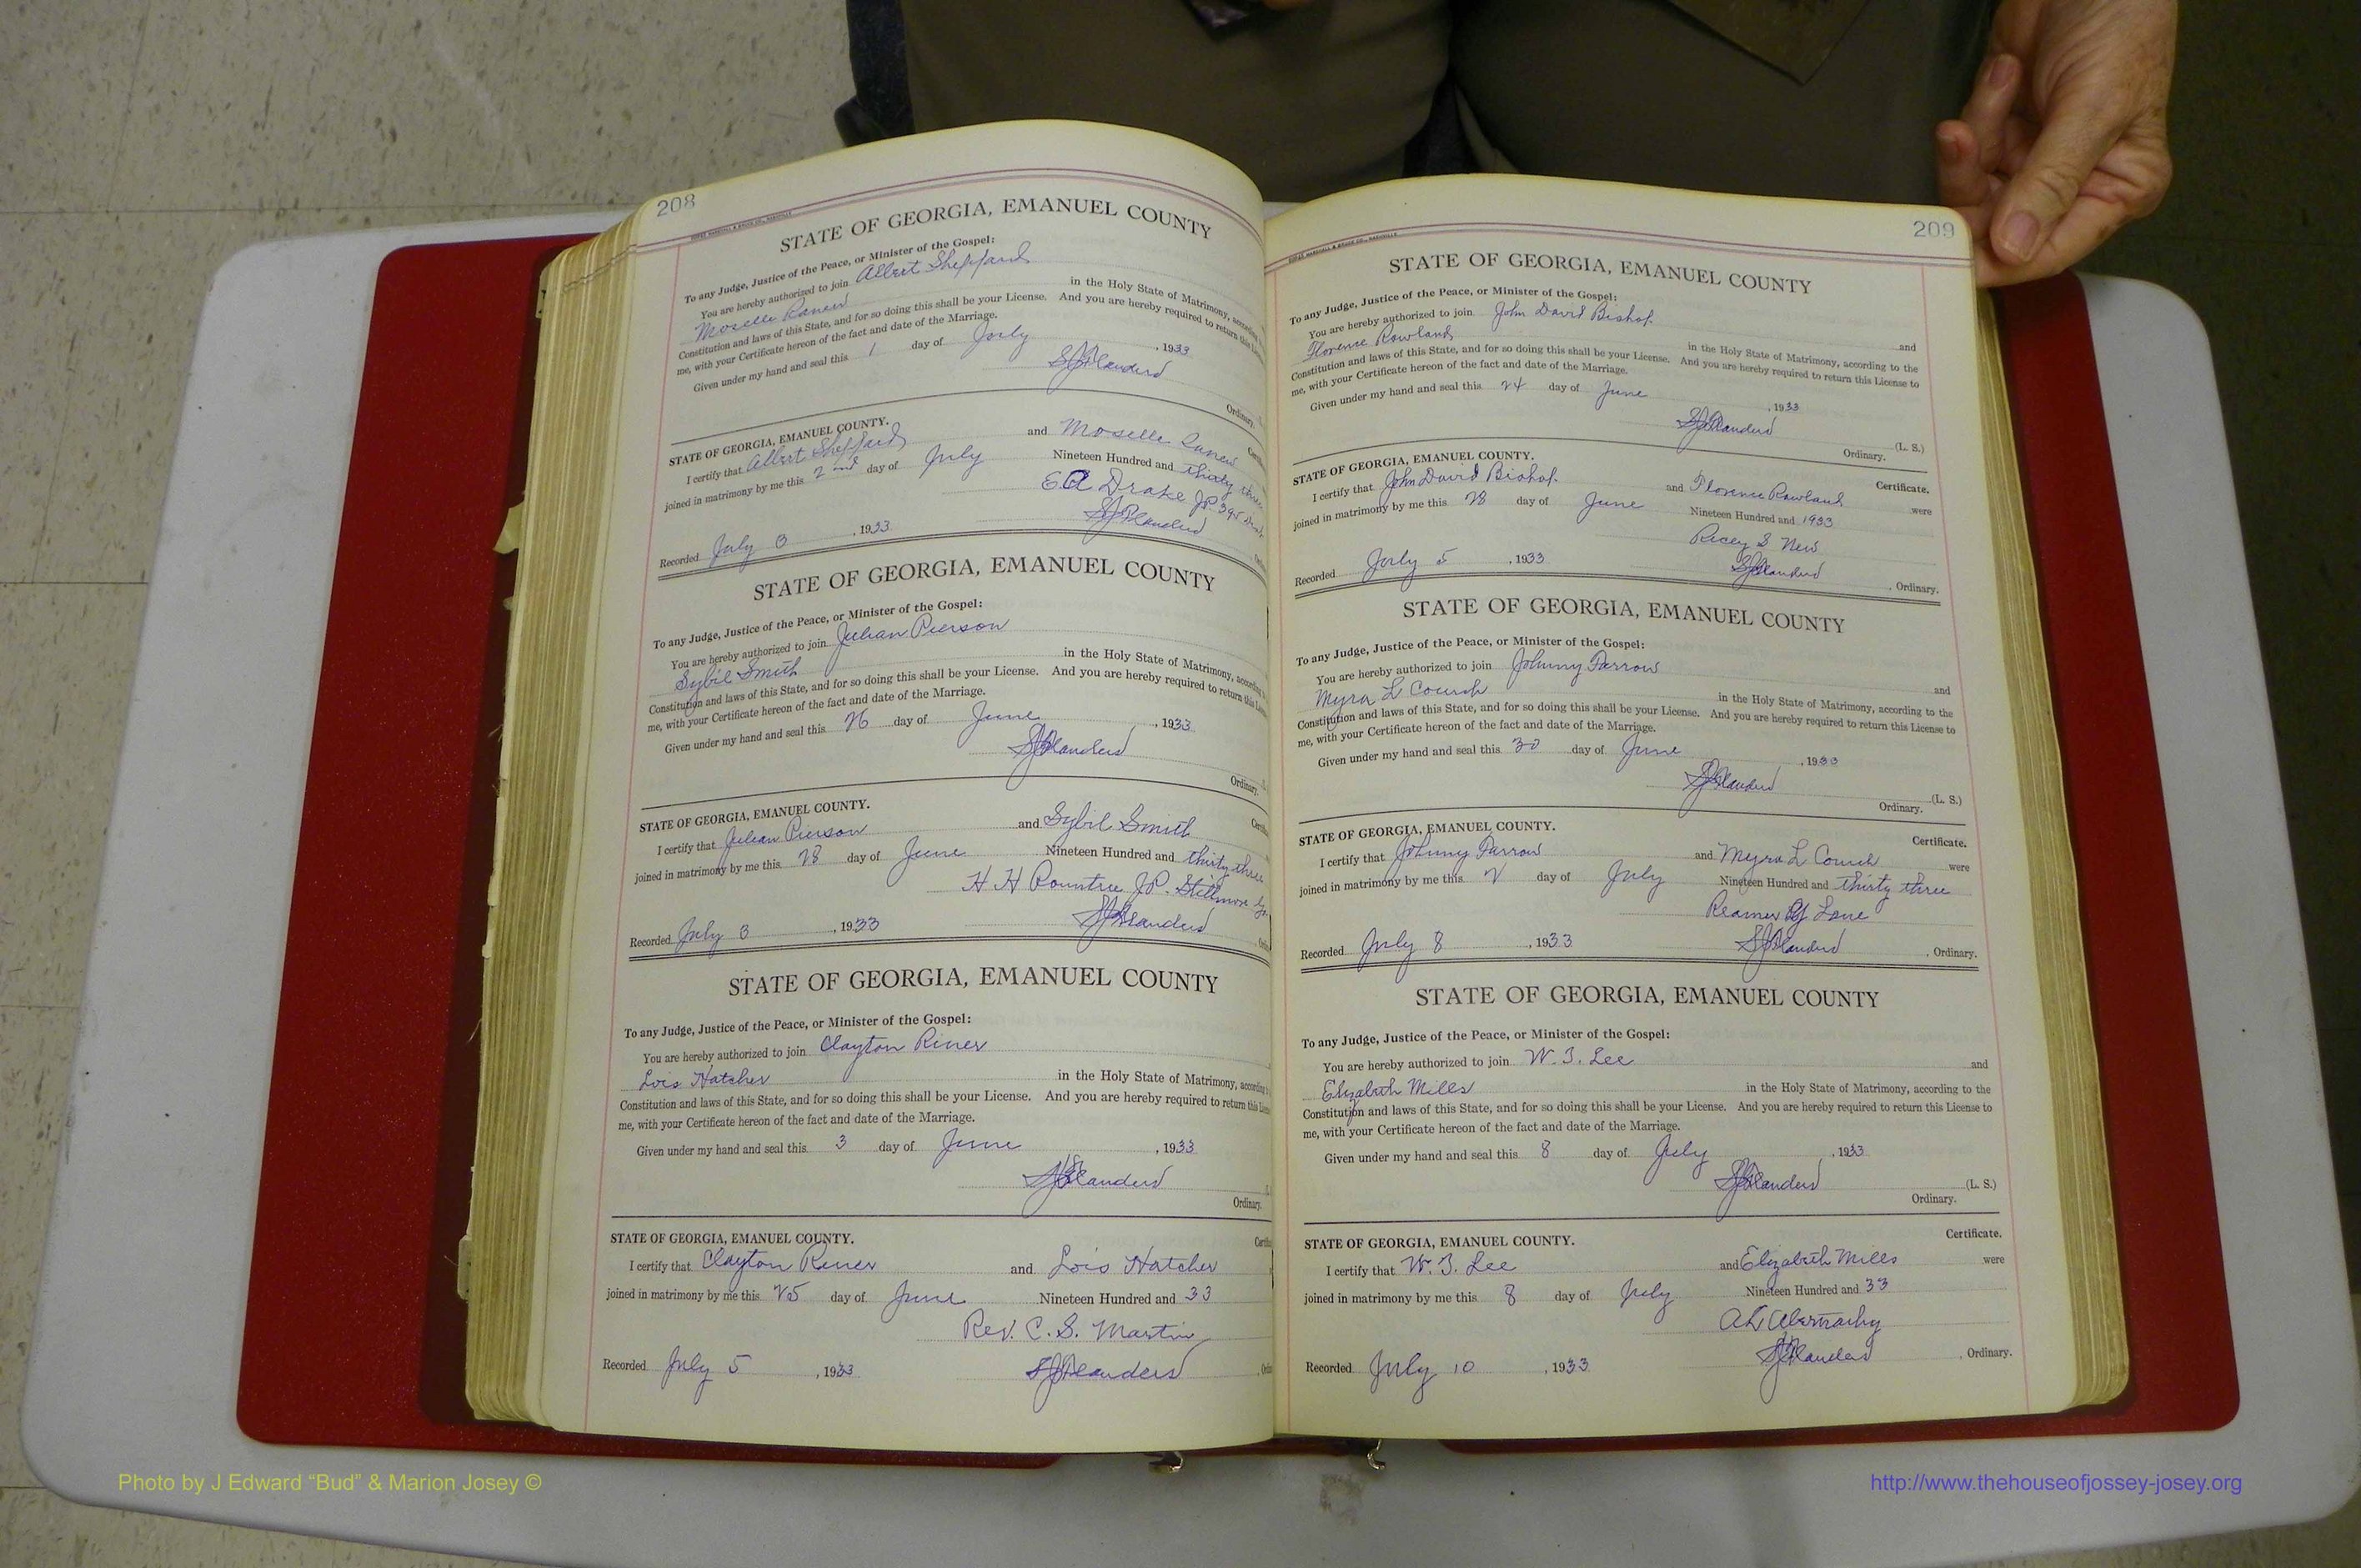 208
STATE OF GEORGIA, EMANUEL COUNTY
To any Judge, Justice of the Peace, or Minister of the Gospel:
You are hereby authorized to join Albert Sheppard
Moselle in the Holy State of Matrimony,
Constitution and laws of this State, and for so doing this shall be your License. And you are hereby required to return this
me, with your Certificate hereon of the fact and date of the Marriage.
Given under my hand and seal this 1 day of July, 1933
Ordinary.
STATE OF GEORGIA, EMANUEL COUNTY.
I certify that Albert Sheppard and Moselle
joined in matrimony by me this 2nd day of July Nineteen Hundred and thirty three
E A Drake JP. 395
Recorded July 3, 1933
STATE OF GEORGIA, EMANUEL COUNTY
To any Judge, Justice of the Peace, or Minister of the Gospel:
You are hereby authorized to join Julian Pierson
Sybil Smith in the Holy State of Matrimony,
Constitution and laws of this State, and for so doing this shall be your License. And you are hereby required to return this
me, with your Certificate hereon of the fact and date of the Marriage.
Given under my hand and seal this 26 day of June, 1933
Ordinary.
STATE OF GEORGIA, EMANUEL COUNTY.
I certify that Julian Pierson and Sybil Smith
joined in matrimony by me this 28 day of June Nineteen Hundred and thirty three
H H Rountree JP. Stillmore Ga.
Recorded July 3, 1933
STATE OF GEORGIA, EMANUEL COUNTY
To any Judge, Justice of the Peace, or Minister of the Gospel:
You are hereby authorized to join Clayton Riner
Lois Hatcher in the Holy State of Matrimony,
Constitution and laws of this State, and for so doing this shall be your License. And you are hereby required to return this
me, with your Certificate hereon of the fact and date of the Marriage.
Given under my hand and seal this 3 day of June, 1933
Ordinary.
STATE OF GEORGIA, EMANUEL COUNTY.
I certify that Clayton Riner and Lois Hatcher
joined in matrimony by me this 25 day of June Nineteen Hundred and 33
Rev. C. S. Martin
Recorded July 5, 1933
209
STATE OF GEORGIA, EMANUEL COUNTY
To any Judge, Justice of the Peace, or Minister of the Gospel:
You are hereby authorized to join John David Bishop and
Florence Rowland in the Holy State of Matrimony, according to the
Constitution and laws of this State, and for so doing this shall be your License. And you are hereby required to return this License to
me, with your Certificate hereon of the fact and date of the Marriage.
Given under my hand and seal this 24 day of June, 1933
(L. S.)
Ordinary.
STATE OF GEORGIA, EMANUEL COUNTY. Certificate.
I certify that John David Bishop and Florence Rowland were
joined in matrimony by me this 28 day of June Nineteen Hundred and 1933
Recorded July 5, 1933, Ordinary.
STATE OF GEORGIA, EMANUEL COUNTY
To any Judge, Justice of the Peace, or Minister of the Gospel:
You are hereby authorized to join Johnny Farrow and
Myra L Couch in the Holy State of Matrimony, according to the
Constitution and laws of this State, and for so doing this shall be your License. And you are hereby required to return this License to
me, with your Certificate hereon of the fact and date of the Marriage.
Given under my hand and seal this 30 day of June, 1933
(L. S.)
Ordinary.
STATE OF GEORGIA, EMANUEL COUNTY. Certificate.
I certify that Johnny Farrow and Myra L Couch were
joined in matrimony by me this 2 day of July Nineteen Hundred and thirty three
Recorded July 8, 1933, Ordinary.
STATE OF GEORGIA, EMANUEL COUNTY
To any Judge, Justice of the Peace, or Minister of the Gospel:
You are hereby authorized to join W. J. Lee and
Elizabeth Mills in the Holy State of Matrimony, according to the
Constitution and laws of this State, and for so doing this shall be your License. And you are hereby required to return this License to
me, with your Certificate hereon of the fact and date of the Marriage.
Given under my hand and seal this 8 day of July, 1933
(L. S.)
Ordinary.
STATE OF GEORGIA, EMANUEL COUNTY. Certificate.
I certify that W. J. Lee and Elizabeth Mills were
joined in matrimony by me this 8 day of July Nineteen Hundred and 33
Recorded July 10, 1933, Ordinary.
Photo by J Edward “Bud” & Marion Josey ©
http://www.thehouseofjossey-josey.org